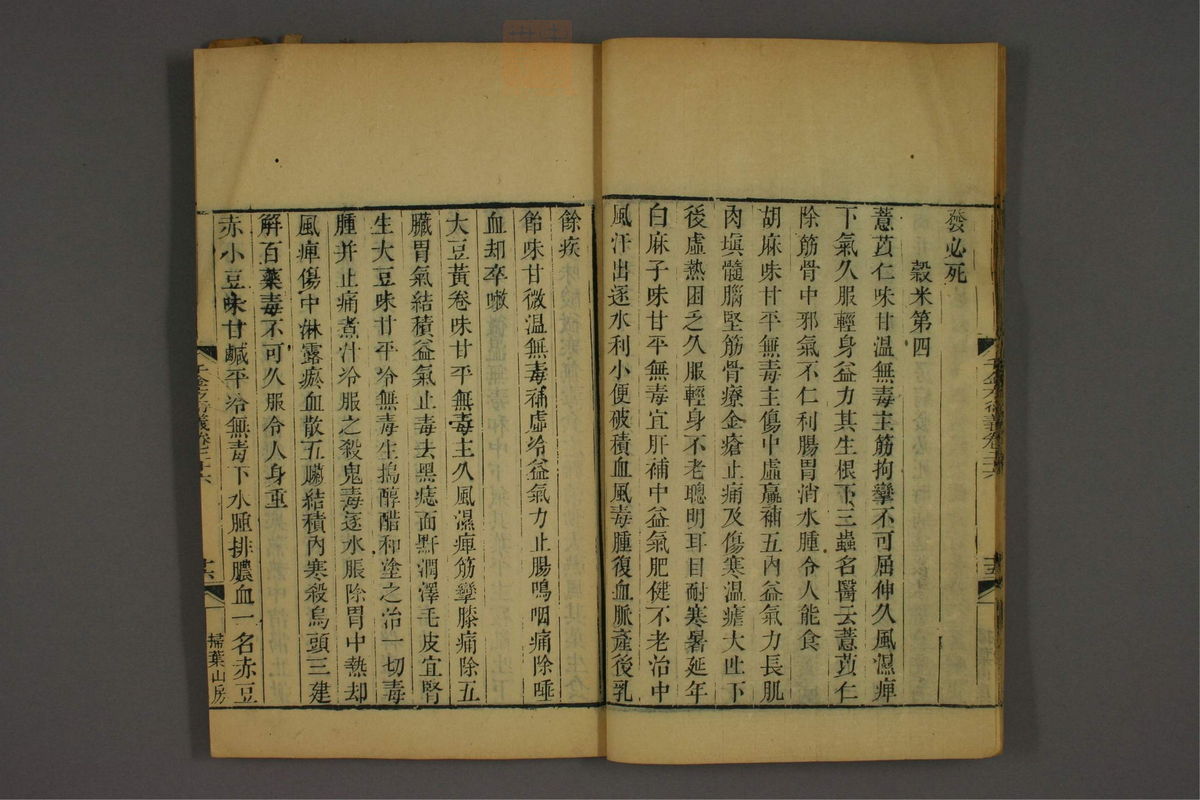 發必死
穀米第四
薏苡仁味甘温無毒主筋拘攣不可屈伸久風濕痺
下氣久服輕身益力其生根下三蟲名醫云薏苡仁
除筋骨中邪氣不仁利腸胃消水腫令人能食
胡麻味甘平無毒主傷中虛羸補五內益氣力長肌
肉塡髓腦堅筋骨療金瘡止痛及傷寒温瘧大吐下
後虛熱困乏久服輕身不老聰明耳目耐寒暑延年
白麻子味甘平無毒宜肝補中益氣肥健不老治中
風汗出逐水利小便破積血風毒腫復血脈產後乳
餘疾
飴味甘微温無毒補虛冷益氣力止腸鳴咽痛除唾
血却卒嗽
大豆黃卷味甘平無毒主久風濕痺筋攣膝痛除五
臟胃氣結積益氣止毒去黑痣面䵟潤澤毛皮宜腎
生大豆味甘平冷無毒生搗醇醋和塗之治一切毒
腫并止痛煮汁冷服之殺鬼毒逐水脹除胃中熱却
風痺傷中淋露瘀血散五臟結積內寒殺烏頭三建
解百藥毒不可久服令人身重
赤小豆味甘鹹平冷無毒下水腫排膿血一名赤豆
千金方衍義卷二十六
掃葉山房